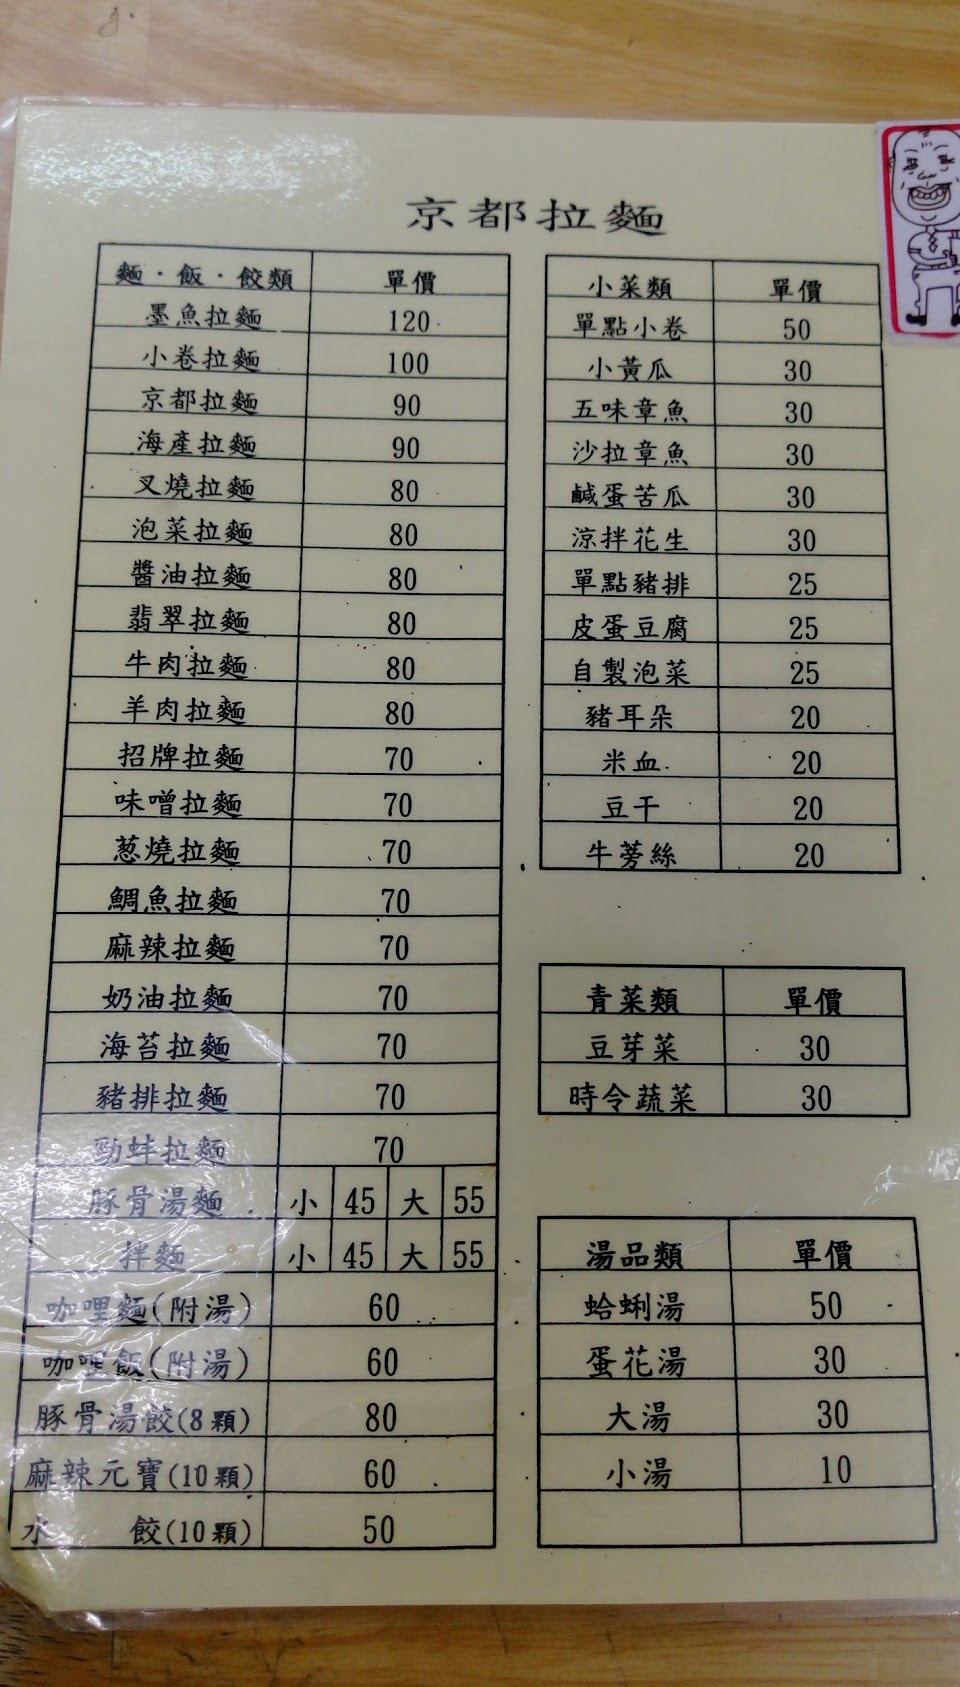 京都拉麵
麵．飯．餃類 單價
墨魚拉麵 120
小卷拉麵 100
京都拉麵 90
海產拉麵 90
叉燒拉麵 80
泡菜拉麵 80
醬油拉麵 80
翡翠拉麵 80
牛肉拉麵 80
羊肉拉麵 80
招牌拉麵 70
味噌拉麵 70
葱燒拉麵 70
鯛魚拉麵 70
麻辣拉麵 70
奶油拉麵 70
海苔拉麵 70
豬排拉麵 70
勁蚌拉麵 70
豚骨湯麵 小 45 大 55
拌麵 小 45 大 55
咖哩麵(附湯) 60
咖哩飯(附湯) 60
豚骨湯餃(8顆) 80
麻辣元寶(10顆) 60
水 餃(10顆) 50
小菜類 單價
單點小卷 50
小黃瓜 30
五味章魚 30
沙拉章魚 30
鹹蛋苦瓜 30
涼拌花生 30
單點豬排 25
皮蛋豆腐 25
自製泡菜 25
豬耳朵 20
米血 20
豆干 20
牛蒡絲 20
青菜類 單價
豆芽菜 30
時令蔬菜 30
湯品類 單價
蛤蜊湯 50
蛋花湯 30
大湯 30
小湯 10